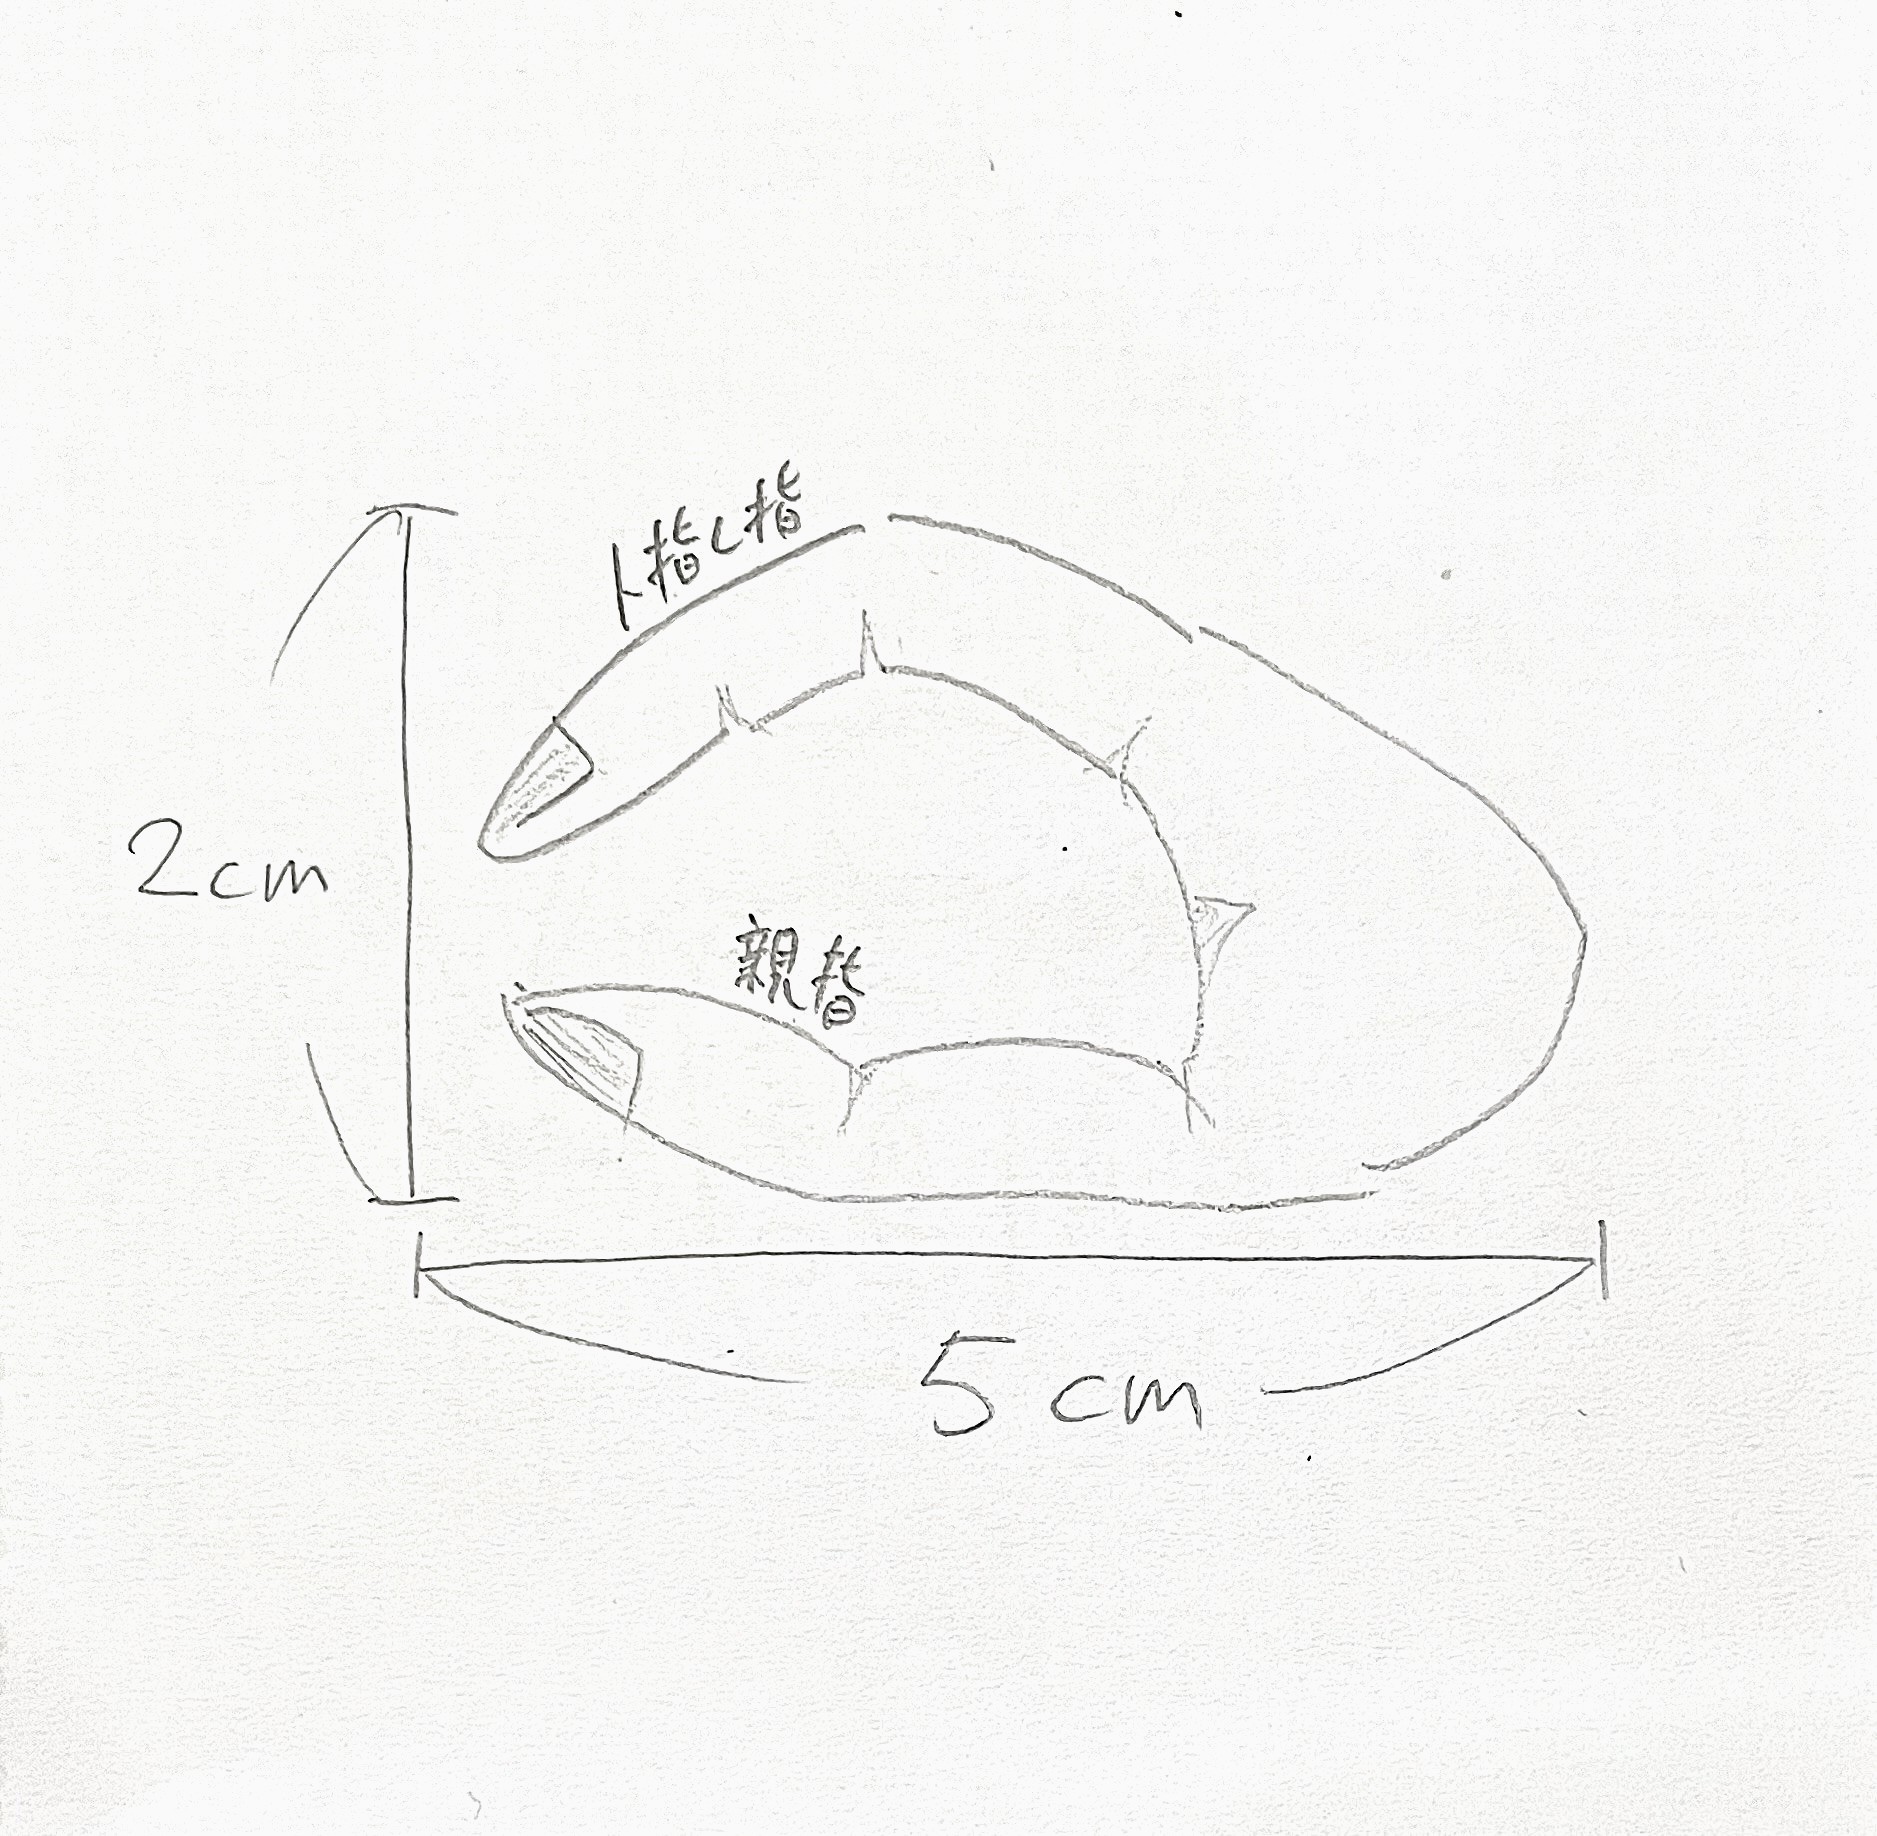 人指し指
2cm
親指
5cm